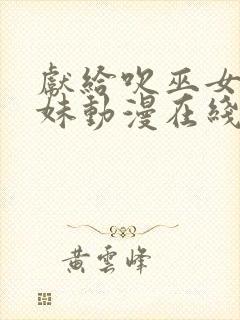 獻給吹巫女
妹動漫在綫
黃雲峰